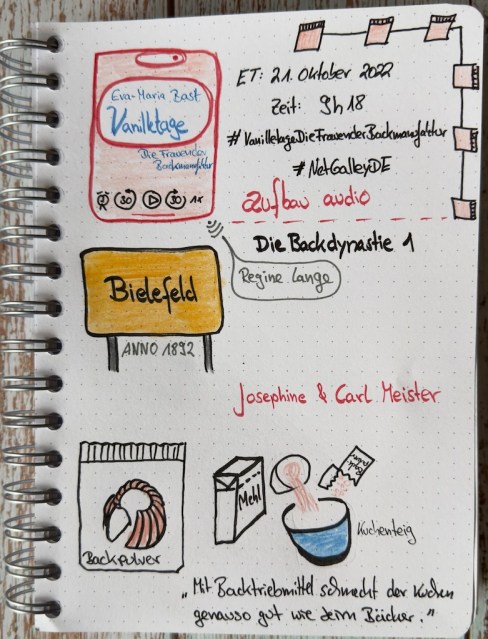 Eva-Maria Bast
Vanilletage
Die Frauen der
Backmanufaktur
30
30
1x
ET: 21. Oktober 2022
Zeit: 9h 18
#VanilletageDieFrauenderBackmanufaktur
#NetGalleyDE
aufbau audio
Die Backdynastie 1
Regine Lange
Bielefeld
ANNO 1892
Josephine & Carl Meister
Backpulver
Mehl
Kuchenteig
„Mit Backtriebmittel schmeckt der Kuchen
genauso gut wie beim Bäcker."